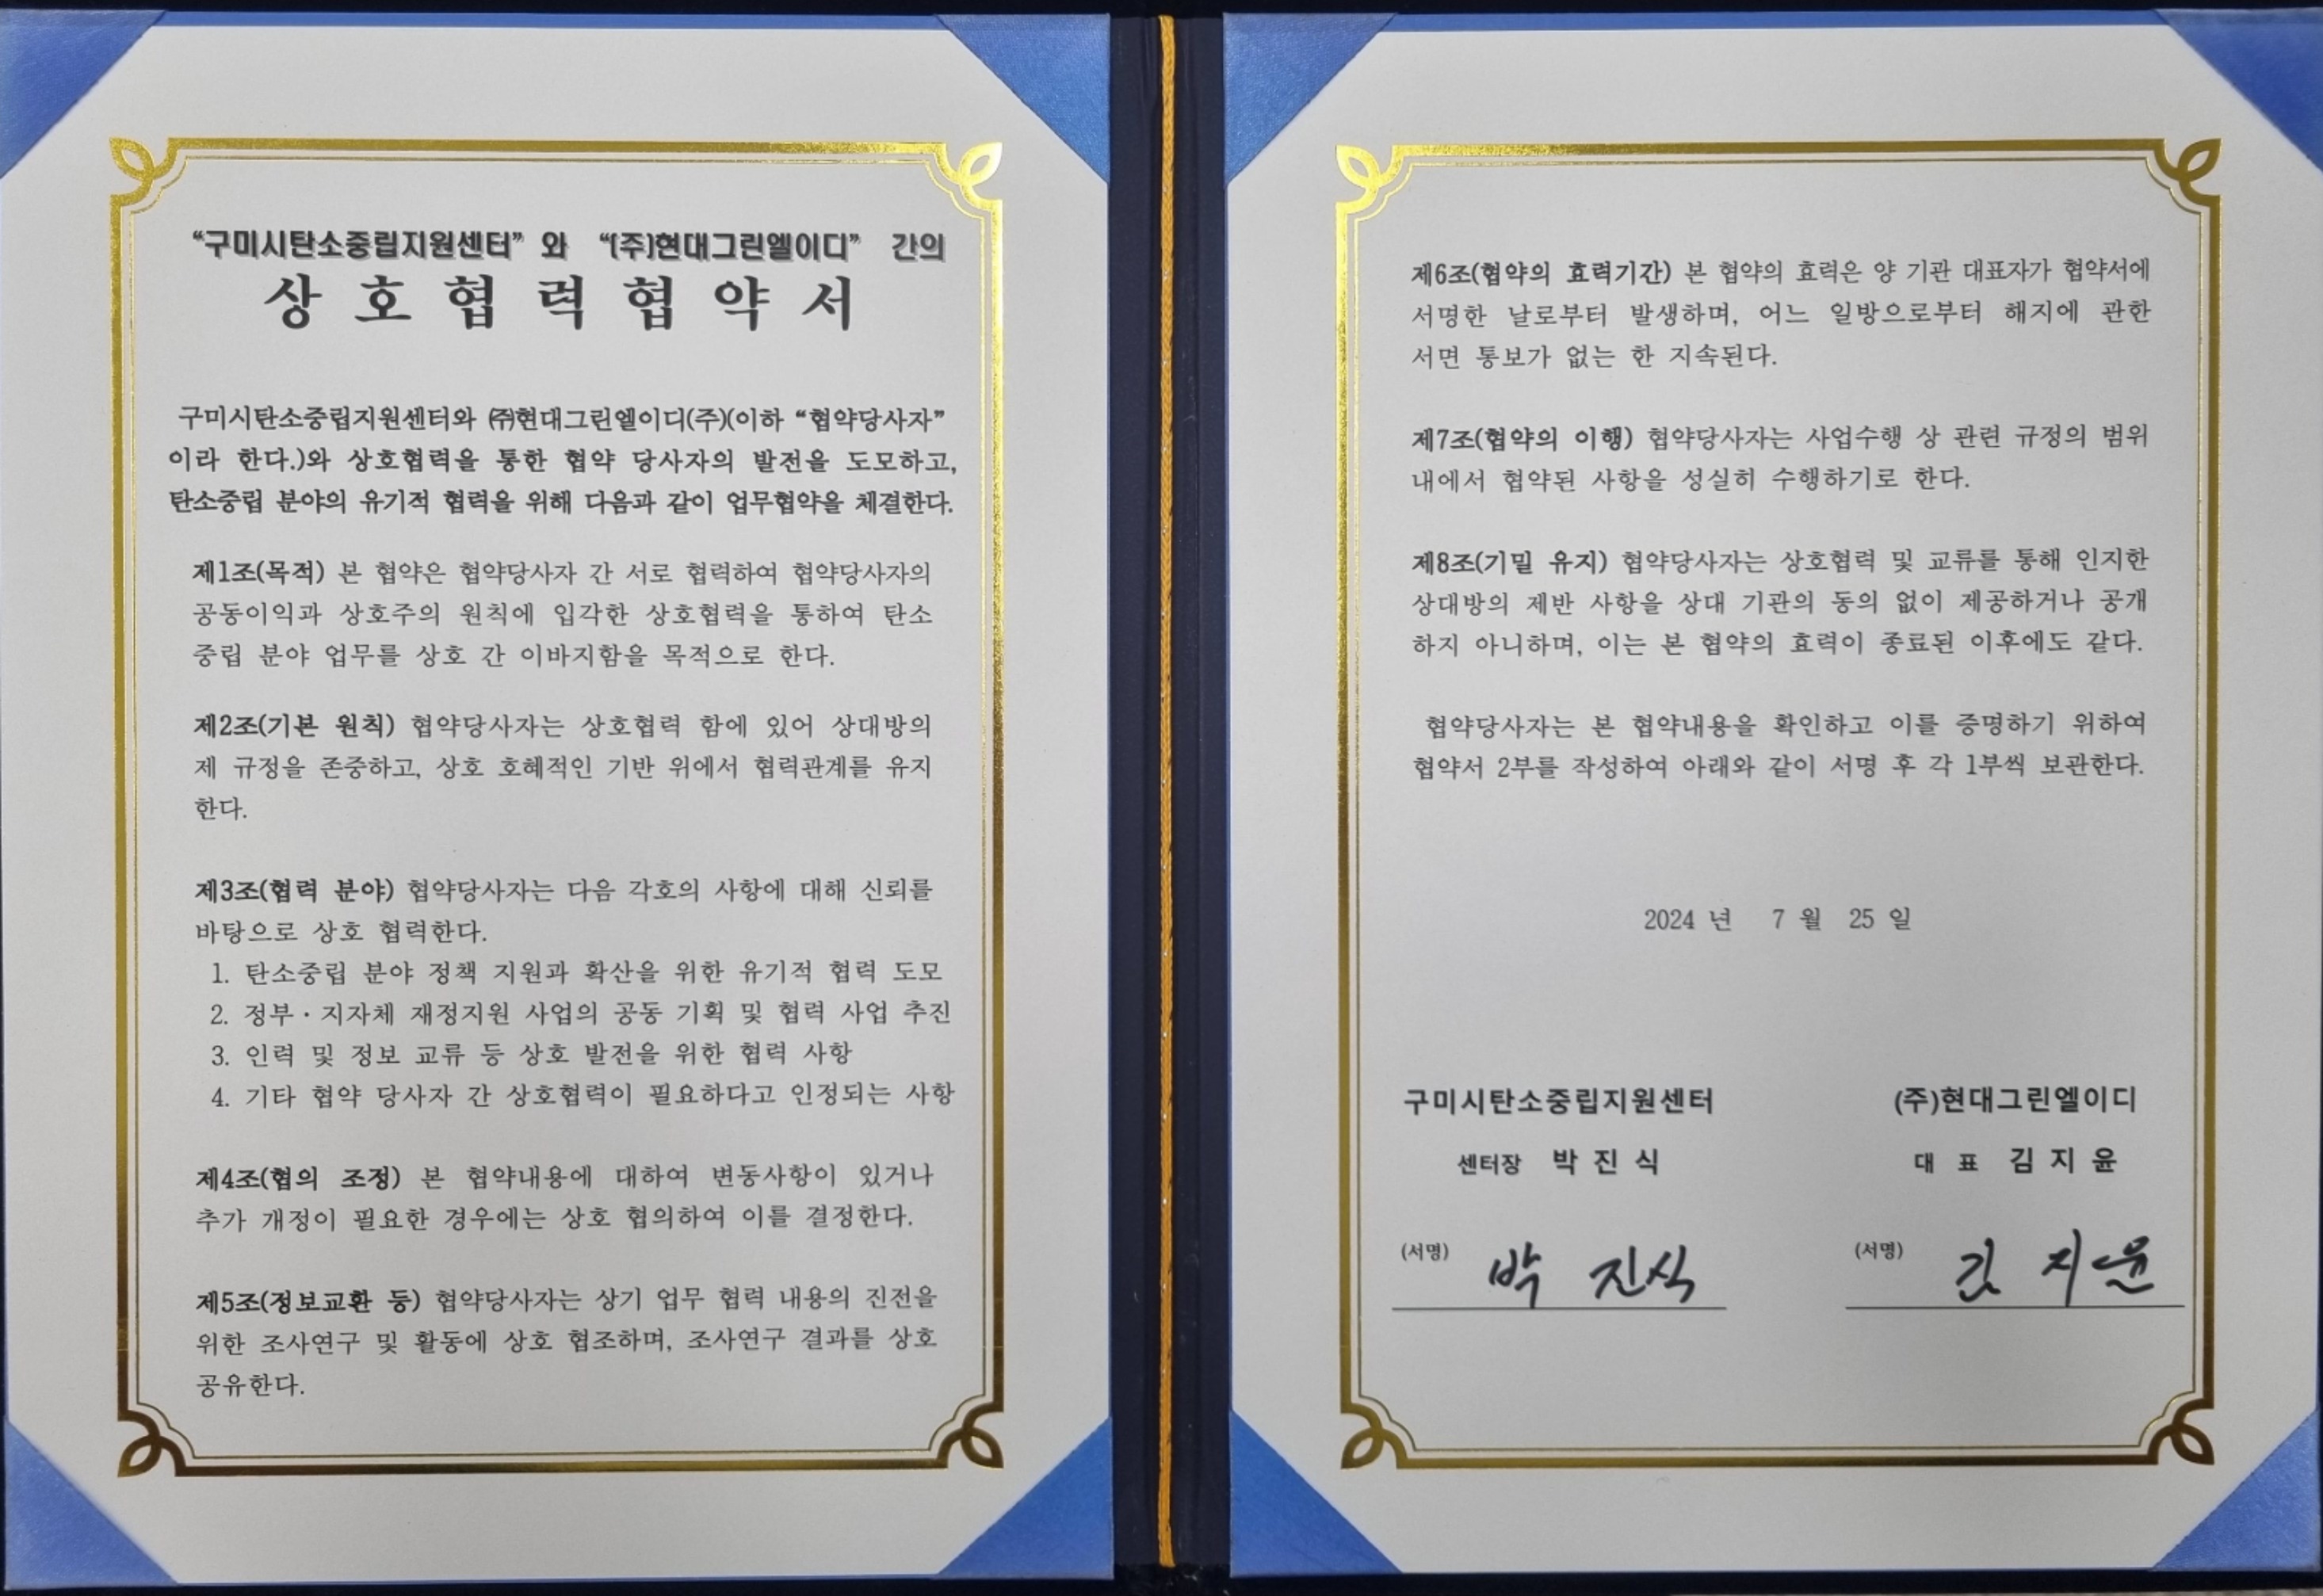 “구미시탄소중립지원센터” 와 “(주)현대그린엘이디” 간의
상 호 협 력 협 약 서
구미시탄소중립지원센터와 ㈜현대그린엘이디(주)(이하 “협약당사자”
이라 한다.)와 상호협력을 통한 협약 당사자의 발전을 도모하고,
탄소중립 분야의 유기적 협력을 위해 다음과 같이 업무협약을 체결한다.
제1조(목적) 본 협약은 협약당사자 간 서로 협력하여 협약당사자의
공동이익과 상호주의 원칙에 입각한 상호협력을 통하여 탄소
중립 분야 업무를 상호 간 이바지함을 목적으로 한다.
제2조(기본 원칙) 협약당사자는 상호협력 함에 있어 상대방의
제 규정을 존중하고, 상호 호혜적인 기반 위에서 협력관계를 유지
한다.
제3조(협력 분야) 협약당사자는 다음 각호의 사항에 대해 신뢰를
바탕으로 상호 협력한다.
1. 탄소중립 분야 정책 지원과 확산을 위한 유기적 협력 도모
2. 정부·지자체 재정지원 사업의 공동 기획 및 협력 사업 추진
3. 인력 및 정보 교류 등 상호 발전을 위한 협력 사항
4. 기타 협약 당사자 간 상호협력이 필요하다고 인정되는 사항
제4조(협의 조정) 본 협약내용에 대하여 변동사항이 있거나
추가 개정이 필요한 경우에는 상호 협의하여 이를 결정한다.
제5조(정보교환 등) 협약당사자는 상기 업무 협력 내용의 진전을
위한 조사연구 및 활동에 상호 협조하며, 조사연구 결과를 상호
공유한다.
제6조(협약의 효력기간) 본 협약의 효력은 양 기관 대표자가 협약서에
서명한 날로부터 발생하며, 어느 일방으로부터 해지에 관한
서면 통보가 없는 한 지속된다.
제7조(협약의 이행) 협약당사자는 사업수행 상 관련 규정의 범위
내에서 협약된 사항을 성실히 수행하기로 한다.
제8조(기밀 유지) 협약당사자는 상호협력 및 교류를 통해 인지한
상대방의 제반 사항을 상대 기관의 동의 없이 제공하거나 공개
하지 아니하며, 이는 본 협약의 효력이 종료된 이후에도 같다.
협약당사자는 본 협약내용을 확인하고 이를 증명하기 위하여
협약서 2부를 작성하여 아래와 같이 서명 후 각 1부씩 보관한다.
2024 년 7 월 25 일
구미시탄소중립지원센터
센터장 박 진 식
(서명) 박 진식
(주)현대그린엘이디
대 표 김 지 윤
(서명) 김 지윤